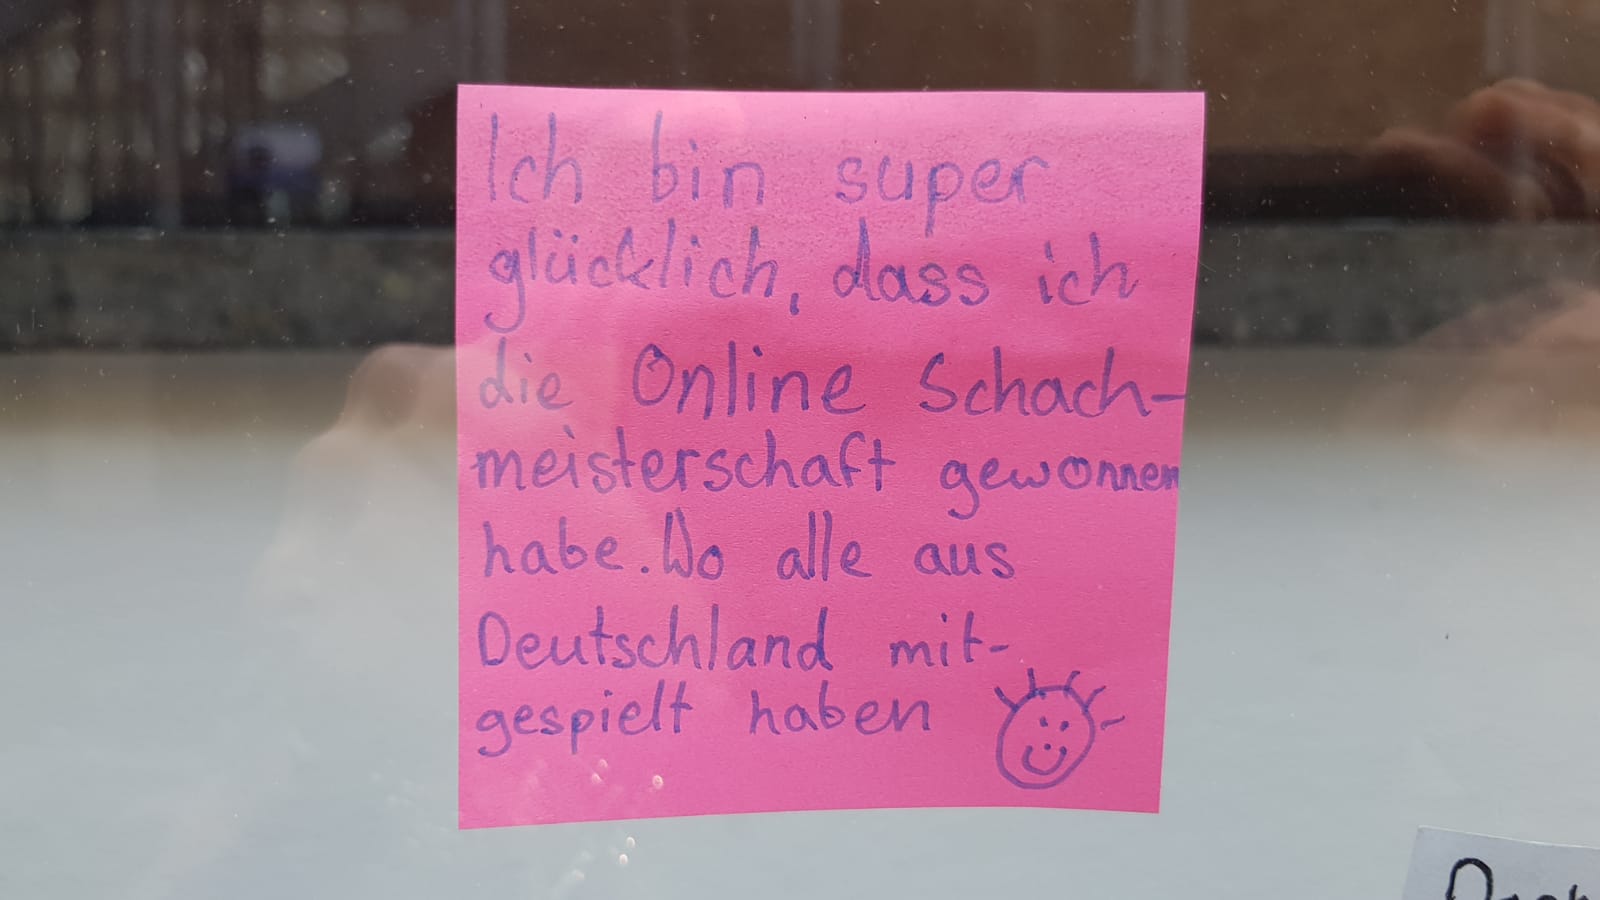 Ich bin super
glücklich, dass ich
die Online Schach-
meisterschaft gewonnen
habe. Wo alle aus
Deutschland mit-
gespielt haben